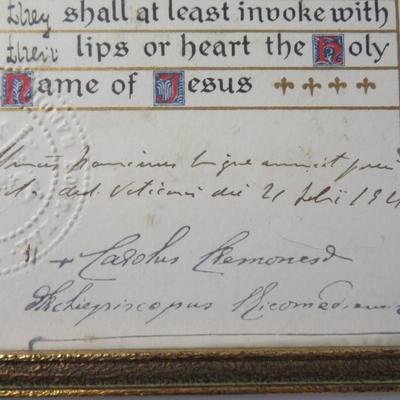 they shall at least invoke with
their lips or heart the Holy
Name of Jesus
benigne annuit
Vaticani die 21
+ Carolus Cremonesi
Archiepiscopus Nicomediensis